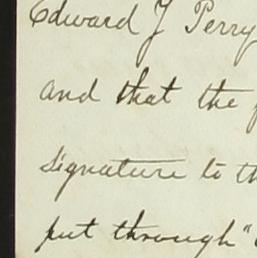 Edward J Perry
and that the
signature to
put through "